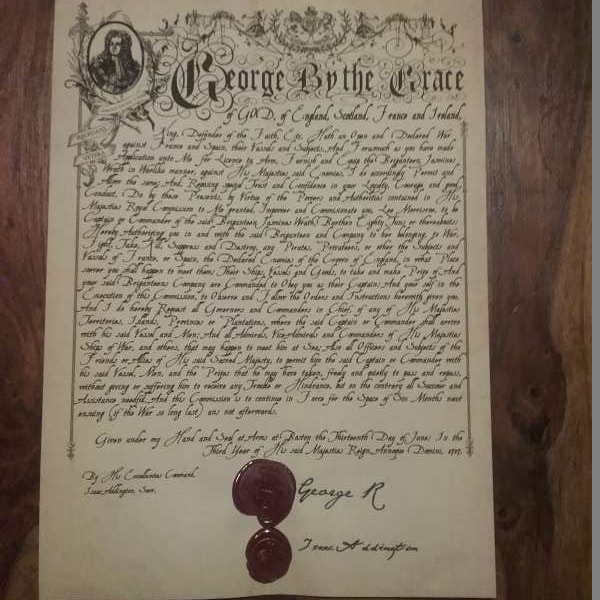 George By the Grace
of GOD, of England, Scotland, France and Ireland,
King, Defender of the Faith, Etc. Hath an Open and Declared War
against France and Spain, their Vassals and Subjects, And Forasmuch as you have made
Application unto Me for Licence to Arm, Furnish and Equip the Briganteen, Jamins
Wrath in Warlike manner, against His Majesties said Enemies, I do accordingly Permit and
Allow the same; And, Reposing special Trust and Confidence in your Loyalty, Courage and good
Conduct, I Do by these Presents, by Virtue of the Powers and Authorities contained in His
Majesties Royal Commission to Me granted, Impower and Commissionate you, Lee Morrison, to be
Captain or Commander of the said Briganteen Jamins Wrath, Burthen Eighty Tuns or thereabouts:
Hereby Authorizing you in and with the said Briganteen and Company to her belonging, to War,
Fight, Take, Kill, Suppress and Destroy, any Pirates, Privateers, or other the Subjects and
Vassals of France, or Spain, the Declared Enemies of the Crown of England, in what Place
soever you shall happen to meet them; Their Ships, Vessels and Goods, to take and make Prize of. And
your said Briganteens Company are Commanded to Obey you as their Captain: And your self in the
Execution of this Commission, to Observe and Follow the Orders and Instructions herewith given you.
And I do hereby Request all Governors and Commanders in Chief, of any of His Majesties
Territories, Islands, Provinces or Plantations, where the said Captain or Commander shall arrive
with his said Vessel and Men: And all Admirals, Vice Admirals and Commanders of His Majesties
Ships of War, and others, that may happen to meet him at Sea; Also all Officers and Subjects of the
Friends or Allies of His said Sacred Majesty, to permit him the said Captain or Commander with
his said Vessel, Men, and the Prizes that he may have taken, freely and quietly to pass and repass,
without giving or suffering him to receive any Trouble or Hindrance, but on the contrary all Succour and
Assistance needful. And this Commission is to continue in Force for the Space of Six Months next
ensuing (if the War so long last) ans not afterwards.
Given under my Hand and Seal at Arms at Boston the Thirteenth Day of June: In the
Third Year of His said Majesties Reign, Annoque Domini, 1717.
By His Excellenties Command,
Isaac Addington, Secr.
George R
Isaac Addington